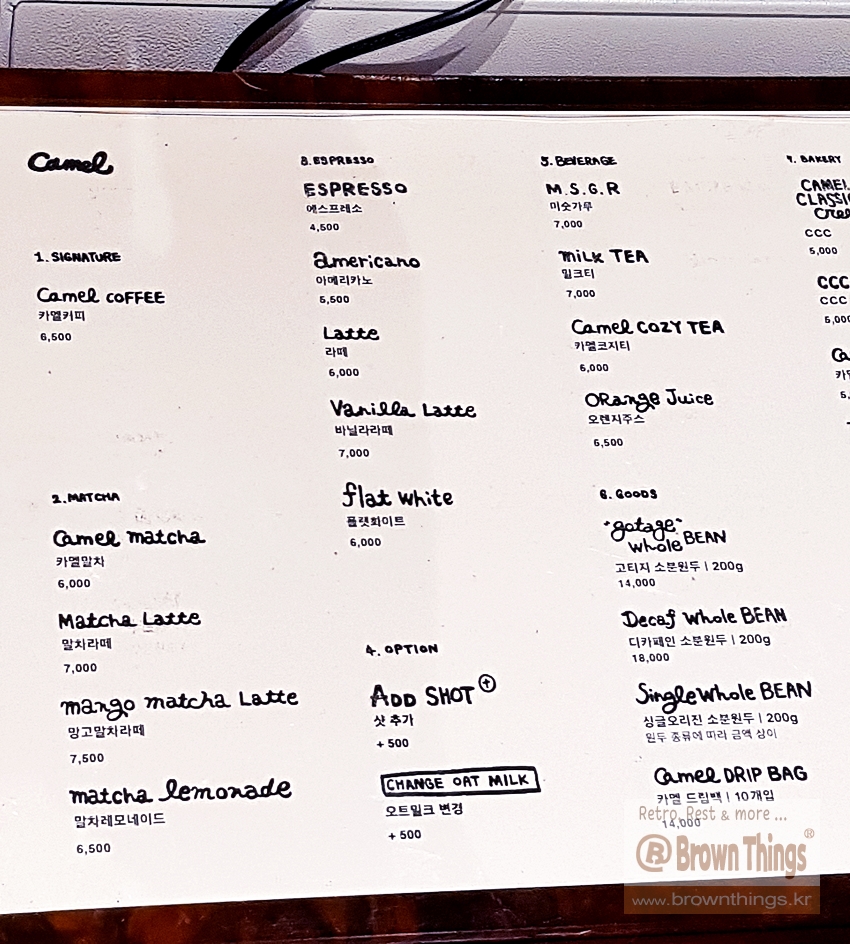 Camel
1. SIGNATURE
Camel COFFEE
카멜커피
6,500
2. MATCHA
Camel matcha
카멜말차
6,000
Matcha Latte
말차라떼
7,000
mango matcha Latte
망고말차라떼
7,500
matcha lemonade
말차레모네이드
6,500
3. ESPRESSO
ESPRESSO
에스프레소
4,500
americano
아메리카노
5,500
Latte
라떼
6,000
Vanilla Latte
바닐라라떼
7,000
flat white
플랫화이트
6,000
4. OPTION
ADD SHOT +
샷 추가
+ 500
CHANGE OAT MILK
오트밀크 변경
+ 500
5. BEVERAGE
M.S.G.R
미숫가루
7,000
MiLK TEA
밀크티
7,000
Camel COZY TEA
카멜코지티
6,000
ORange Juice
오렌지주스
6,500
6. GOODS
"gotage"
whole BEAN
고티지 소분원두 | 200g
14,000
Decaf whole BEAN
디카페인 소분원두 | 200g
18,000
Single whole BEAN
싱글오리진 소분원두 | 200g
원두 종류에 따라 금액 상이
Camel DRIP BAG
카멜 드립백 | 10개입
14,000
7. BAKERY
CAMEL
CLASSIC
CCC
5,000
CCC
CCC
5,000
Retro, Rest & more ...
® Brown Things ®
www.brownthings.kr